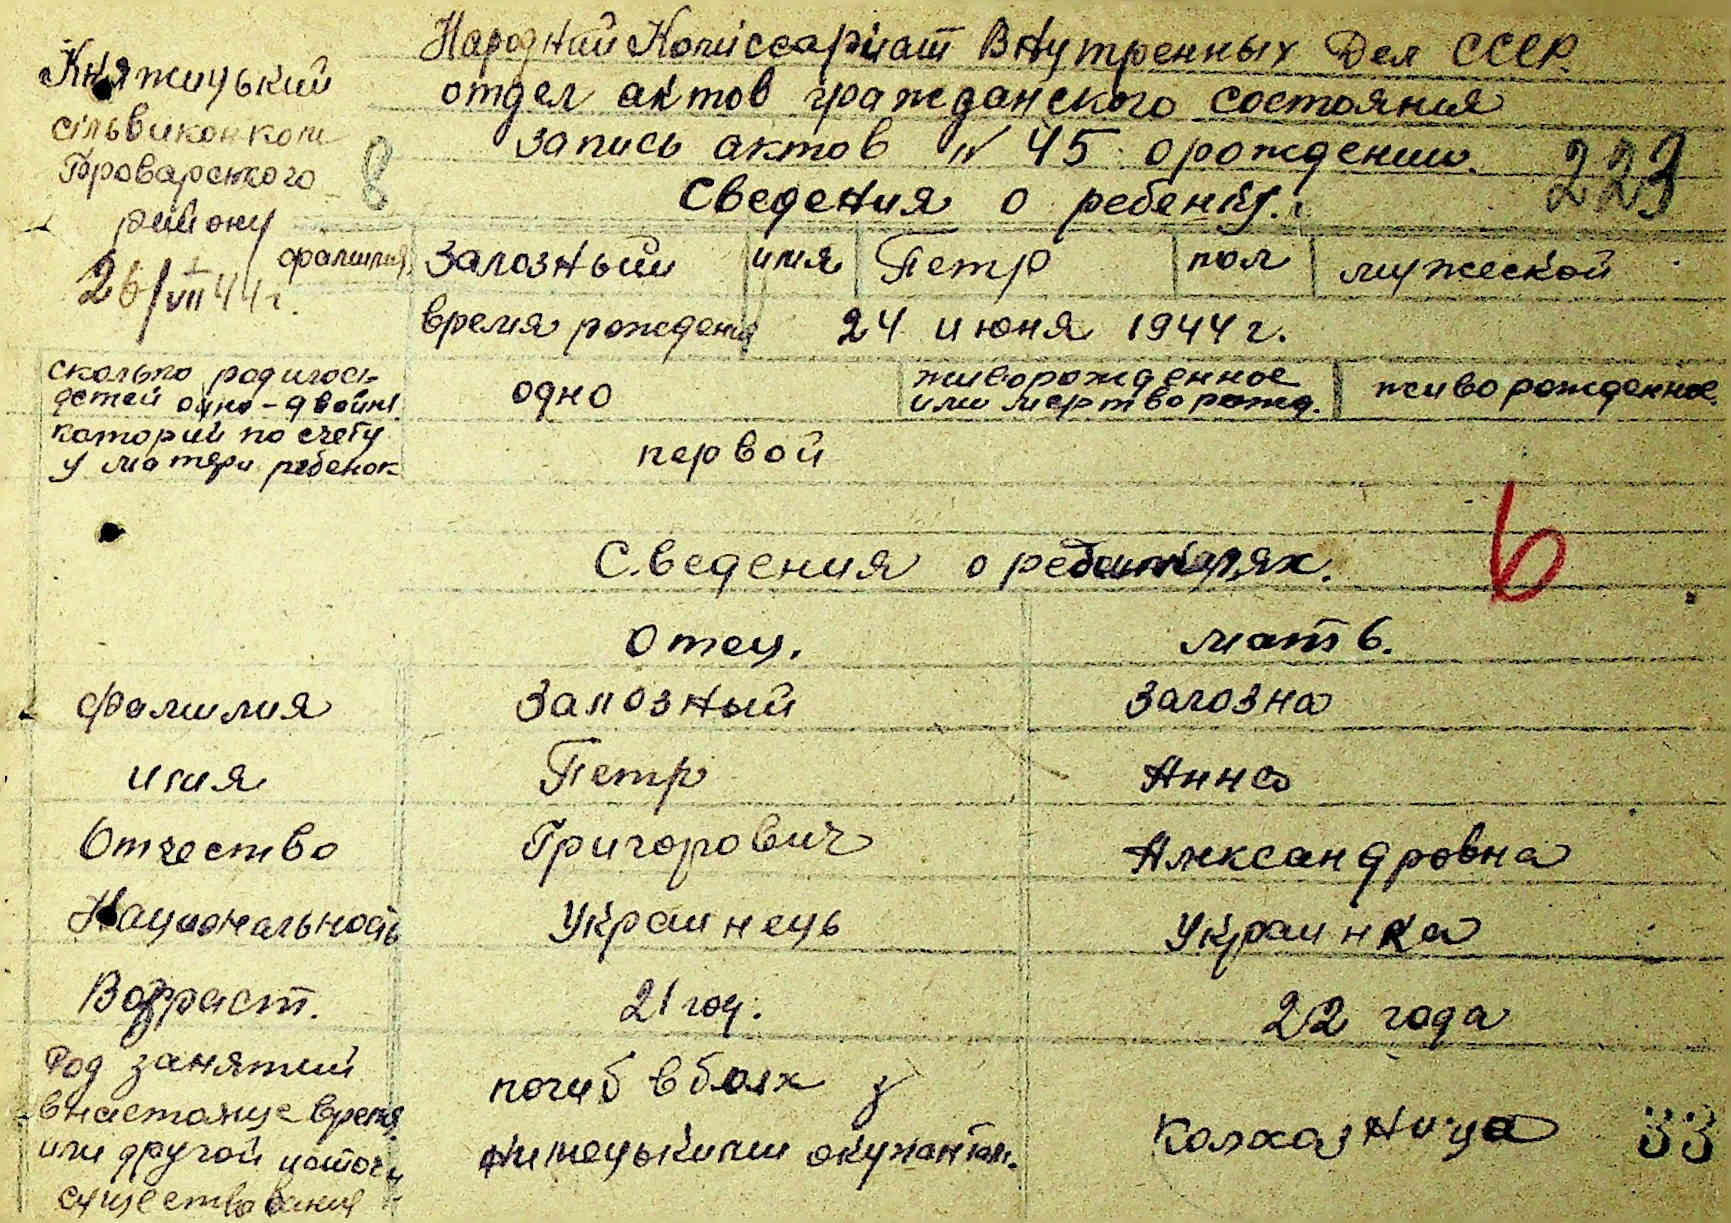 Народний Комiссариат Внутренных Дел СССР.
отдел актов гражданского состояния
запись актов № 45 о рождении.
Сведения о ребенку.
Княжицький
сiльвиконком
Броварського
району
26/VII 44 г.
8
223
фамилия Залозный имя Петр пол мужеской
время рождения 24 июня 1944 г.
сколько родилось
детей одно-двойни одно живорожденное
или мертворожд. живорожденное
каторий по счету
у матери ребенок первой
Сведения о
6
Отец. мать.
фамилия Залозный Залозна
имя Петр Анна
Отчество Григорович Александровна
Национальность Украинець Украинка
Возраст. 21 год. 22 года
Род занятий
внастояще время
или другой источн
существования
погиб в боях з
нимецькими окупантам.
колхозница
33